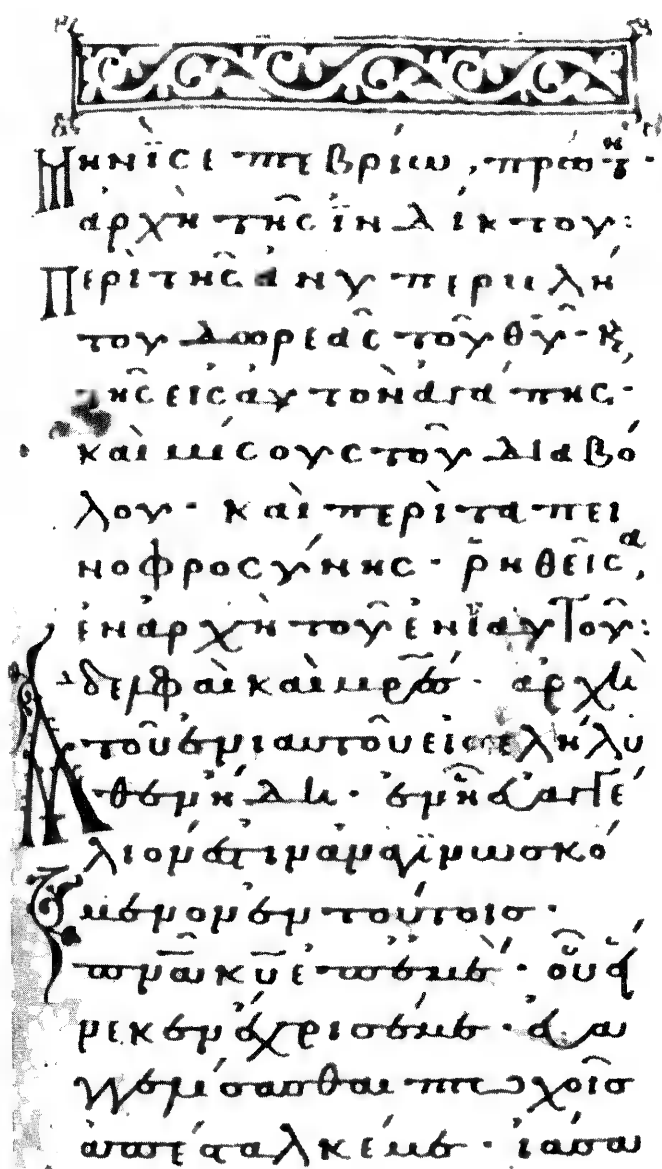 Μηνὶ σεπτεβρίω, πρώτη·
ἀρχὴ τῆς ἰνδίκτου:
Περὶ τῆς ἀνυπερβλή
του δωρεᾶς τοῦ θυ· κ
τῆς εἰς αὐτὸν ἀγάπης·
καὶ μίσους τοῦ διαβό
λου· καὶ περὶ ταπει
νοφροσύνης· ῥηθεῖσα,
ἐν ἀρχῆ τοῦ ἐνιαυτοῦ:
Ἀδελφοὶ καὶ πρσ· ἀρχὴ
τοῦ ἐνιαυτοῦ εἰσελήλυ
θεν ἤδη· ἐν ῇ εὐαγγέ
λιον ἀναγινωσκό
μενον ἐν τούτοις·
πνα κυ ἐπ' ἐμέ· οὗ εἵ
νεκεν ἔχρισέ με· εὐα
γγελίσασθαι πτωχοῖς
ἀπέσταλκέ με· ἰάσα